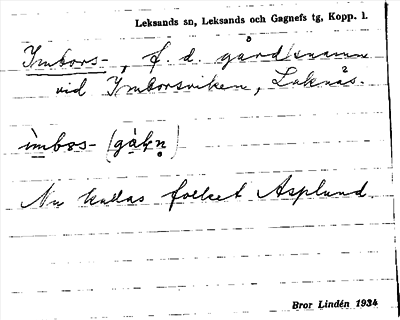 Leksands sn, Leksands och Gagnefs tg, Kopp. l.
Ymbors-, f. d. gård(snamn
vid Ymborsviken, Laknäs.
ìmbos- (gàḷṇ)
Nu kallas folket Asplund.
Bror Lindén 1934